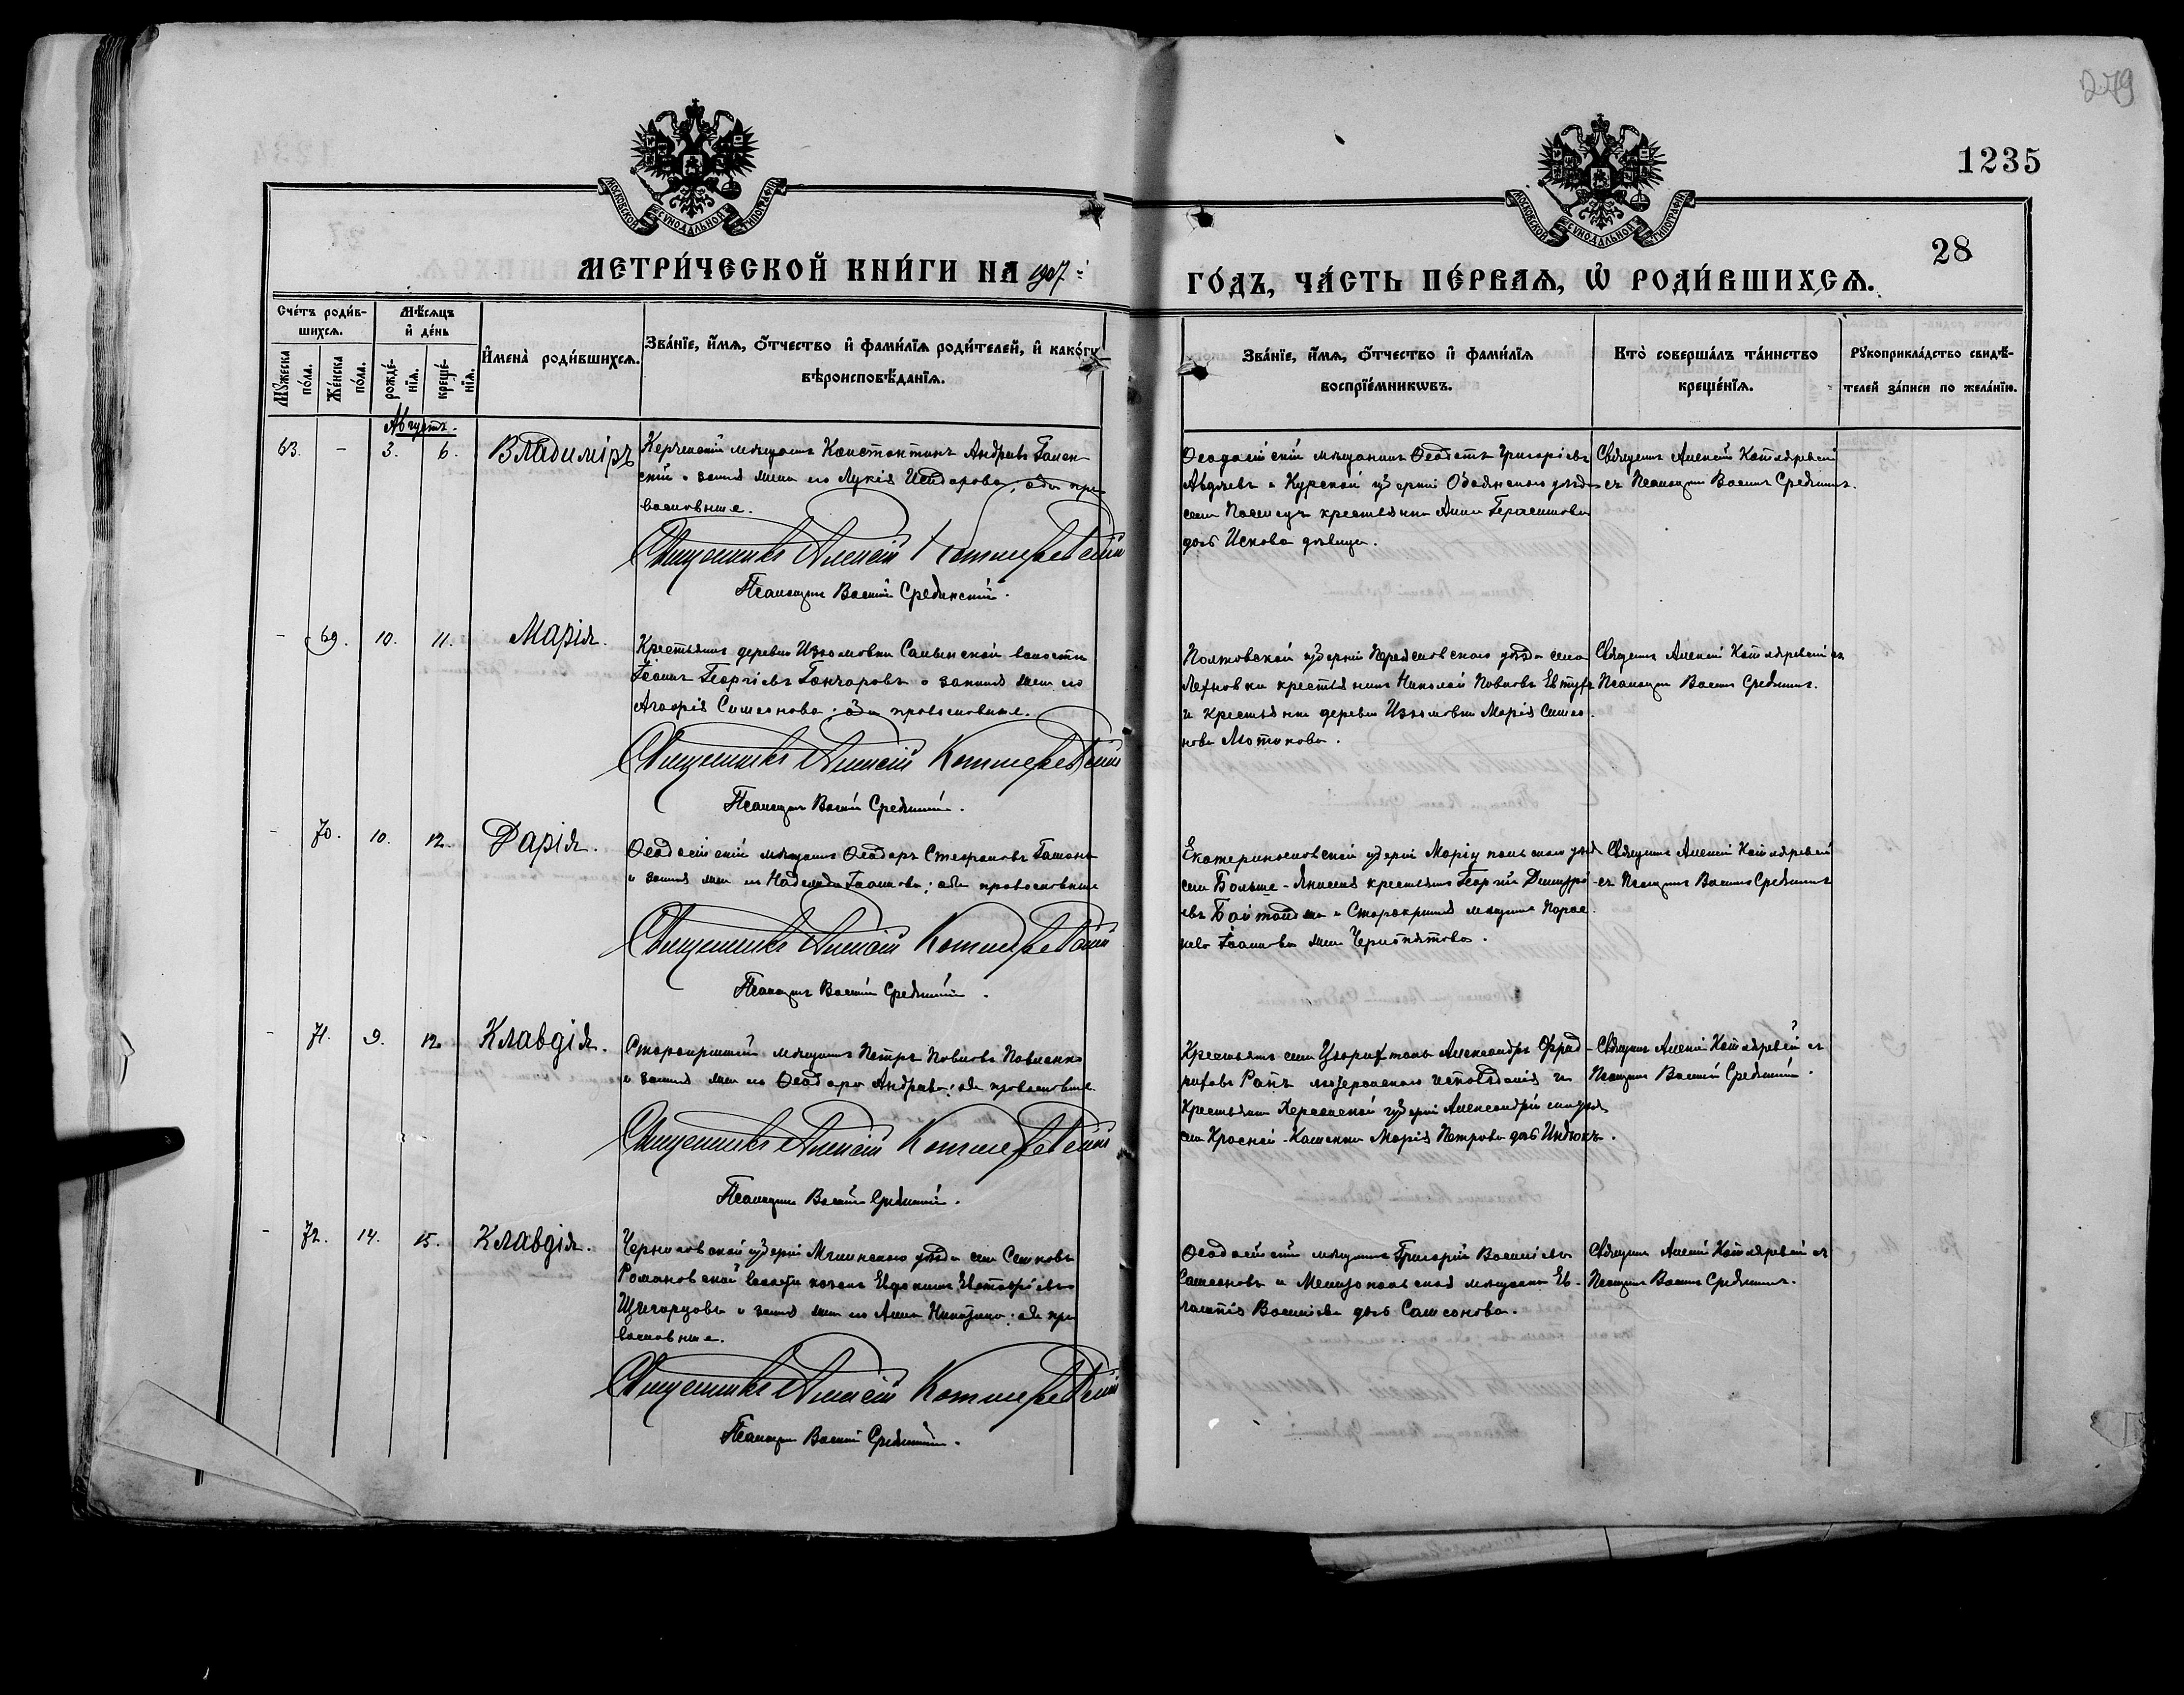 279
1235
28
МОСКОВСКОЙ СУНОДАЛЬНОЙ ТИПОГРАФІИ
МОСКОВСКОЙ СУНОДАЛЬНОЙ ТИПОГРАФІИ
МЕТРИ́ЧЕСКОЙ КНИ́ГИ НА 1907
ГО́ДЪ, ЧА́СТЬ ПЕ́РВАѦ, Ѡ҆ РОДИ́ВШИХСѦ.
Сче́тъ роди́в-
шихсѧ.
Мѣ́сѧцъ
и҆ де́нь
Мꙋ́жеска по́ла.
Же́нска по́ла.
рожде́-
нїѧ.
креще́-
нїѧ.
И҆мена̀ роди́вшихсѧ.
Зва́нїе, и҆́мѧ, ѻ҆́тчество и҆ фами́лїѧ роди́телей, и҆ како́гѡ
вѣроисповѣ́данїѧ.
Зва́нїе, и҆́мѧ, ѻ҆́тчество и҆ фами́лїѧ
воспрїе́мникѡвъ.
Кто̀ соверша́лъ та́инство
креще́нїѧ.
Рꙋкоприкла́дство свидѣ́-
телей за́писи по жела́нїю.
Августъ.
63. - 3. 6. Владиміръ
Керченскій мѣщанинъ Константинъ Андреевъ
и законная жена его Лукія Исидорова, оба пра-
вославные.
Священникъ Алексій Котляревскій
Псаломщикъ Василій Срединскій.
Ѳеодосійскій мѣщанинъ Ѳеодотъ Григорьевъ
Авдѣевъ и Курской губерніи Обоянскаго уѣзда
села крестьянка Анна Герасимова
дочь дѣвица.
Священникъ Алексій Котляревскій
съ Псаломщикомъ Василіемъ Срединскимъ.
- 69. 10. 11. Марія.
Крестьянинъ деревни Изюмовки Салынской волости
Іоаннъ Георгіевъ Гончаровъ и законная жена его
Агафія Симеонова; оба православные.
Священникъ Алексій Котляревскій
Псаломщикъ Василій Срединскій.
Полтавской губерніи Переяславскаго уѣзда села
крестьянинъ Николай Павловъ Евтух
и крестьянка деревни Изюмовки Марія Симео-
нова Лютикова.
Священникъ Алексій Котляревскій съ
Псаломщикомъ Василіемъ Срединскимъ.
- 70. 10. 12. Дарія.
Ѳеодосійскій мѣщанинъ Ѳеодоръ Стефановъ
и законная жена его Надежда Іоаннова; оба православные
Священникъ Алексій Котляревскій
Псаломщикъ Василій Срединскій.
Екатеринославской губерніи Маріупольскаго уѣзда
села Больше-Янисоля крестьянинъ Георгій Димитрі-
евъ и Старокрымская мѣщанка Парас-
кева Іоаннова жена
Священникъ Алексій Котляревскій
съ Псаломщикомъ Василіемъ Срединскимъ
- 71. 9. 12. Клавдія.
Старокрымскій мѣщанинъ Петръ Павловъ Павленко
и законная жена его Ѳеодора Андреева; оба православные
Священникъ Алексій Котляревскій
Псаломщикъ Василій Срединскій.
Крестьянинъ села Цюрихталь Александръ Фрид-
риховъ лютеранскаго исповѣданія и
Крестьянка Херсонской губерніи Александрійскаго уѣзда
села Красной-Каменки Марія Петрова дочь Индюкъ.
Священникъ Алексій Котляревскій съ
Псаломщикъ Василій Срединскій.
- 72. 14. 15. Клавдія.
Черниговской губерніи Мглинскаго уѣзда села
Романовской волости казакъ Евдокимъ
и законная жена его Анна; оба пра-
вославные.
Священникъ Алексій Котляревскій
Псаломщикъ Василій Срединскій.
Ѳеодосійскій мѣщанинъ Григорій Васильевъ
Самсоновъ и Мелитопольская мѣщанка Ев-
лампія Васильева дочь Самсонова.
Священникъ Алексій Котляревскій съ
Псаломщикомъ Василіемъ Срединскимъ.